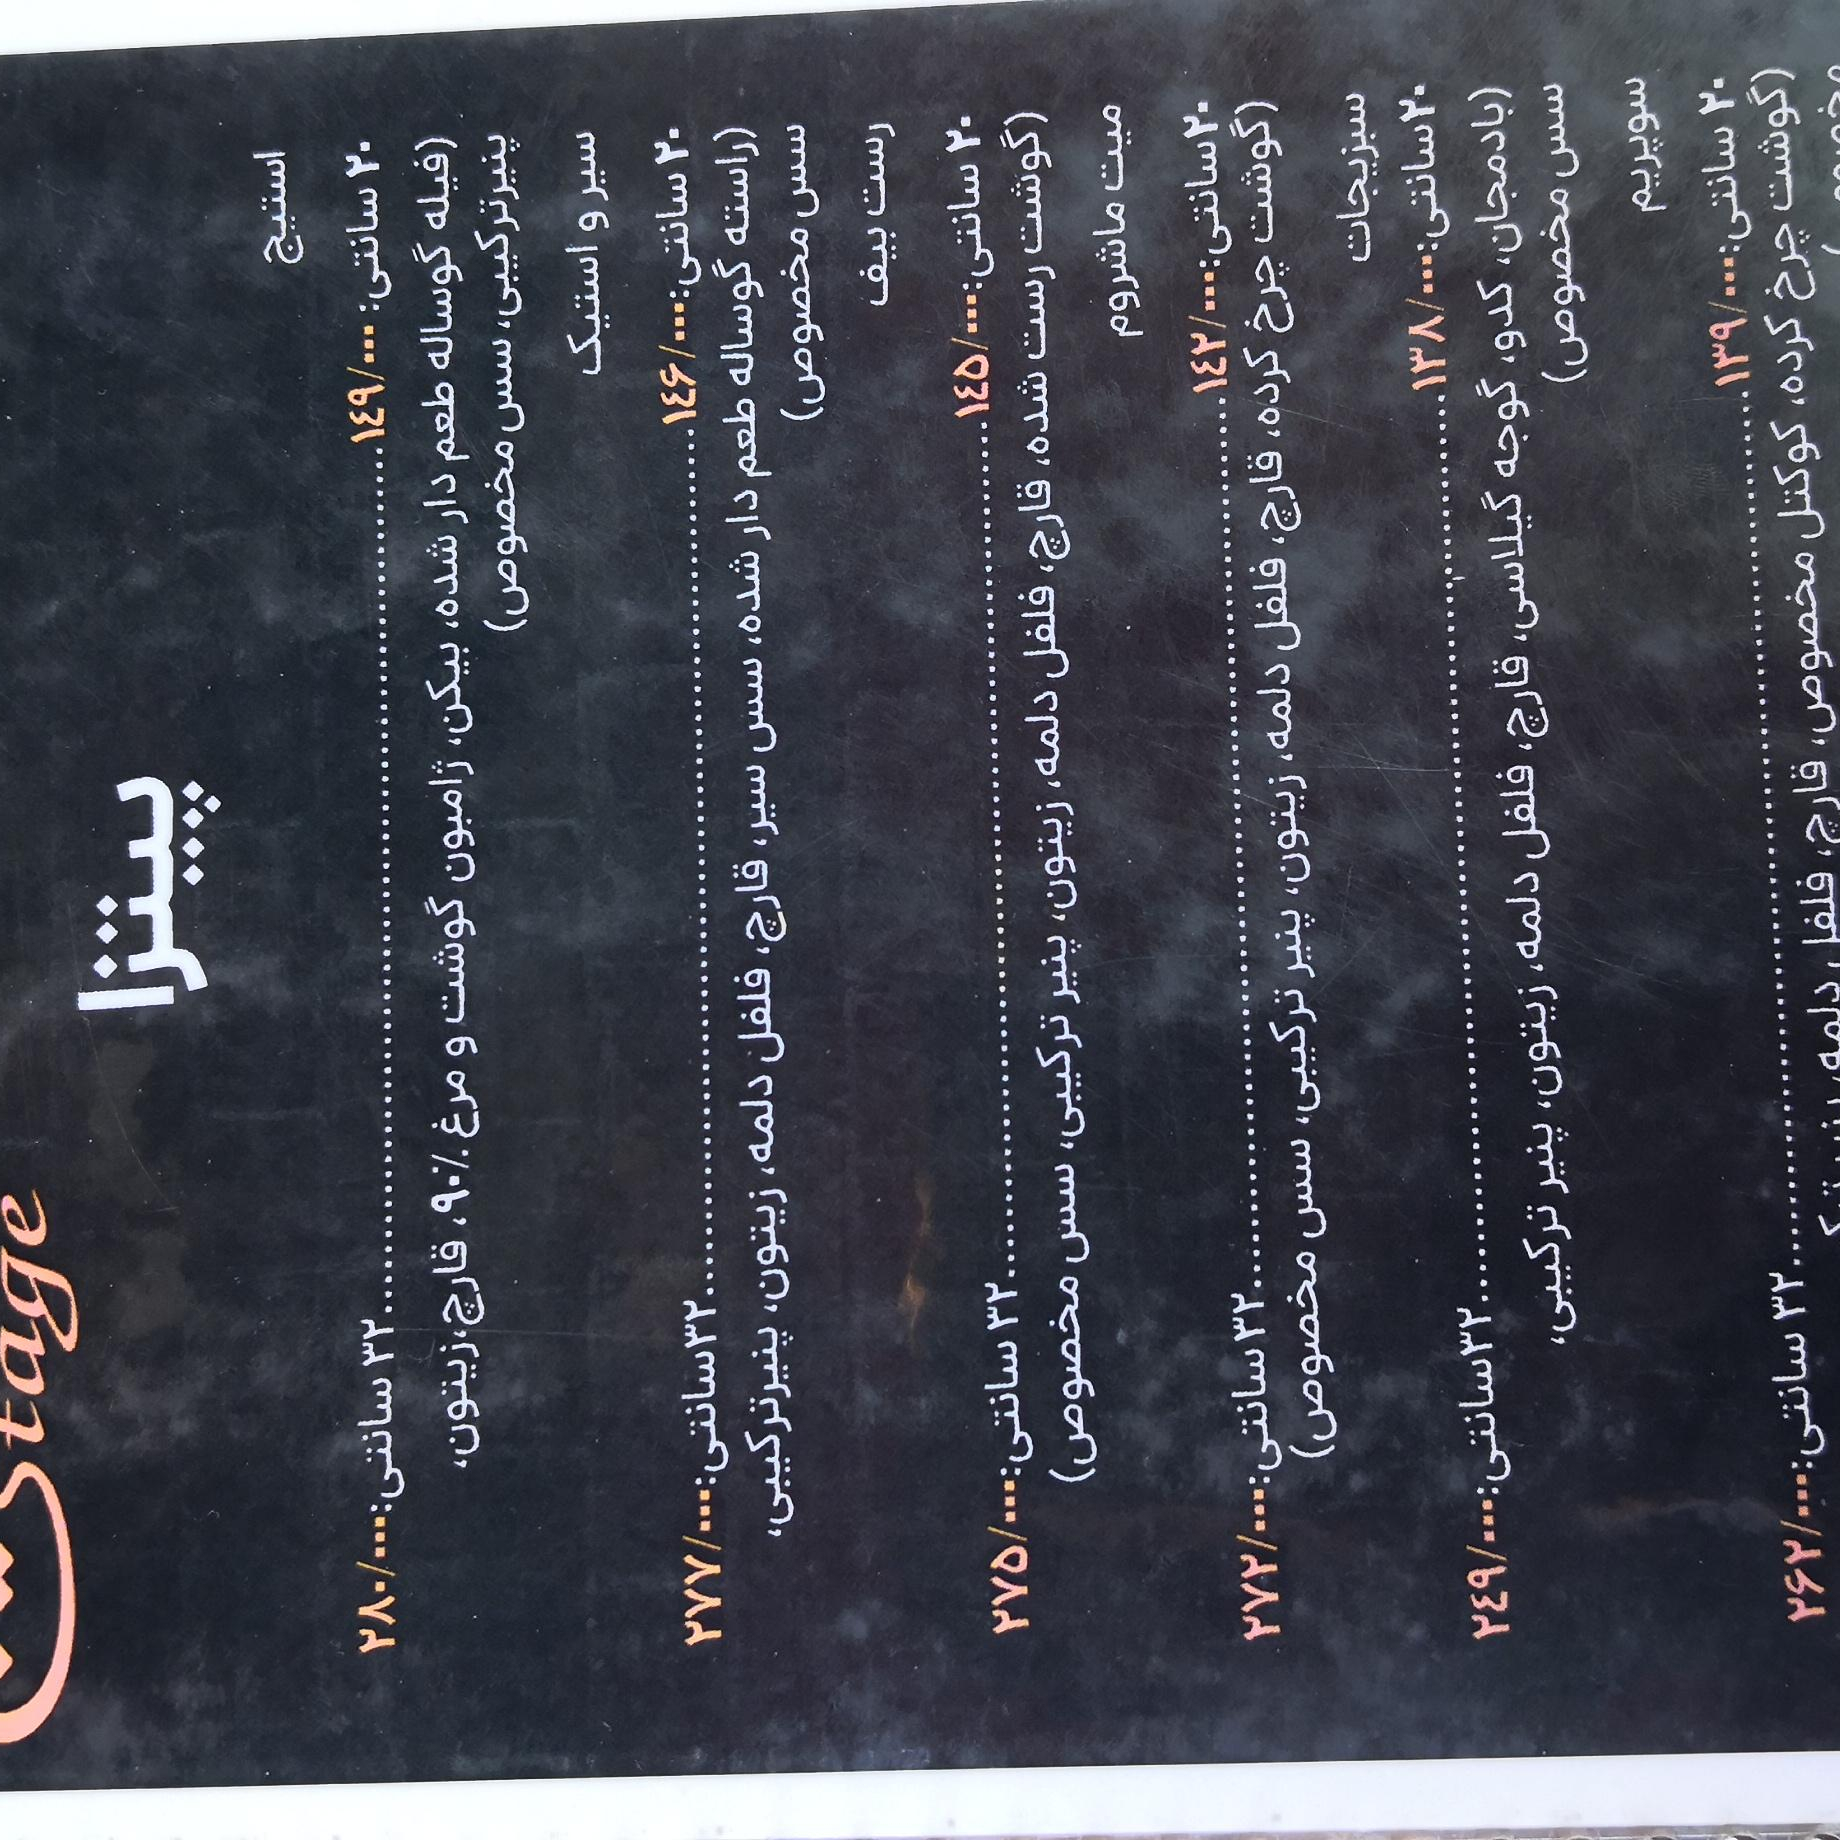 Stage
پیتزا
استیج
۲۰ سانتی: ۱۴۹/۰۰۰ ........ ۳۲ سانتی: ۲۸۰/۰۰۰
(فیله گوساله طعم دار شده، بیکن، ژامبون گوشت و مرغ ۹۰٪، قارچ، زیتون،
پنیرترکیبی، سس مخصوص)
سیر و استیک
۲۰ سانتی: ۱۴۶/۰۰۰ ........ ۳۲سانتی: ۲۷۷/۰۰۰
(راسته گوساله طعم دار شده، سس سیر، قارچ، فلفل دلمه، زیتون، پنیرترکیبی،
سس مخصوص)
رست بیف
۲۰ سانتی: ۱۴۵/۰۰۰ ........ ۳۲ سانتی: ۲۷۵/۰۰۰
(گوشت رست شده، قارچ، فلفل دلمه، زیتون، پنیر ترکیبی، سس مخصوص)
میت ماشروم
۲۰سانتی: ۱۴۲/۰۰۰ ........ ۳۲ سانتی: ۲۷۲/۰۰۰
(گوشت چرخ کرده، قارچ، فلفل دلمه، زیتون، پنیر ترکیبی، سس مخصوص)
سبزیجات
۲۰سانتی: ۱۳۸/۰۰۰ ........ ۳۲سانتی: ۲۴۹/۰۰۰
(بادمجان، کدو، گوجه گیلاسی، قارچ، فلفل دلمه، زیتون، پنیر ترکیبی،
سس مخصوص)
سوپریم
۲۰ سانتی: ۱۳۹/۰۰۰ ........ ۳۲ سانتی: ۲۶۲/۰۰۰
(گوشت چرخ کرده، کوکتل مخصوص، قارچ، فلفل دلمه،